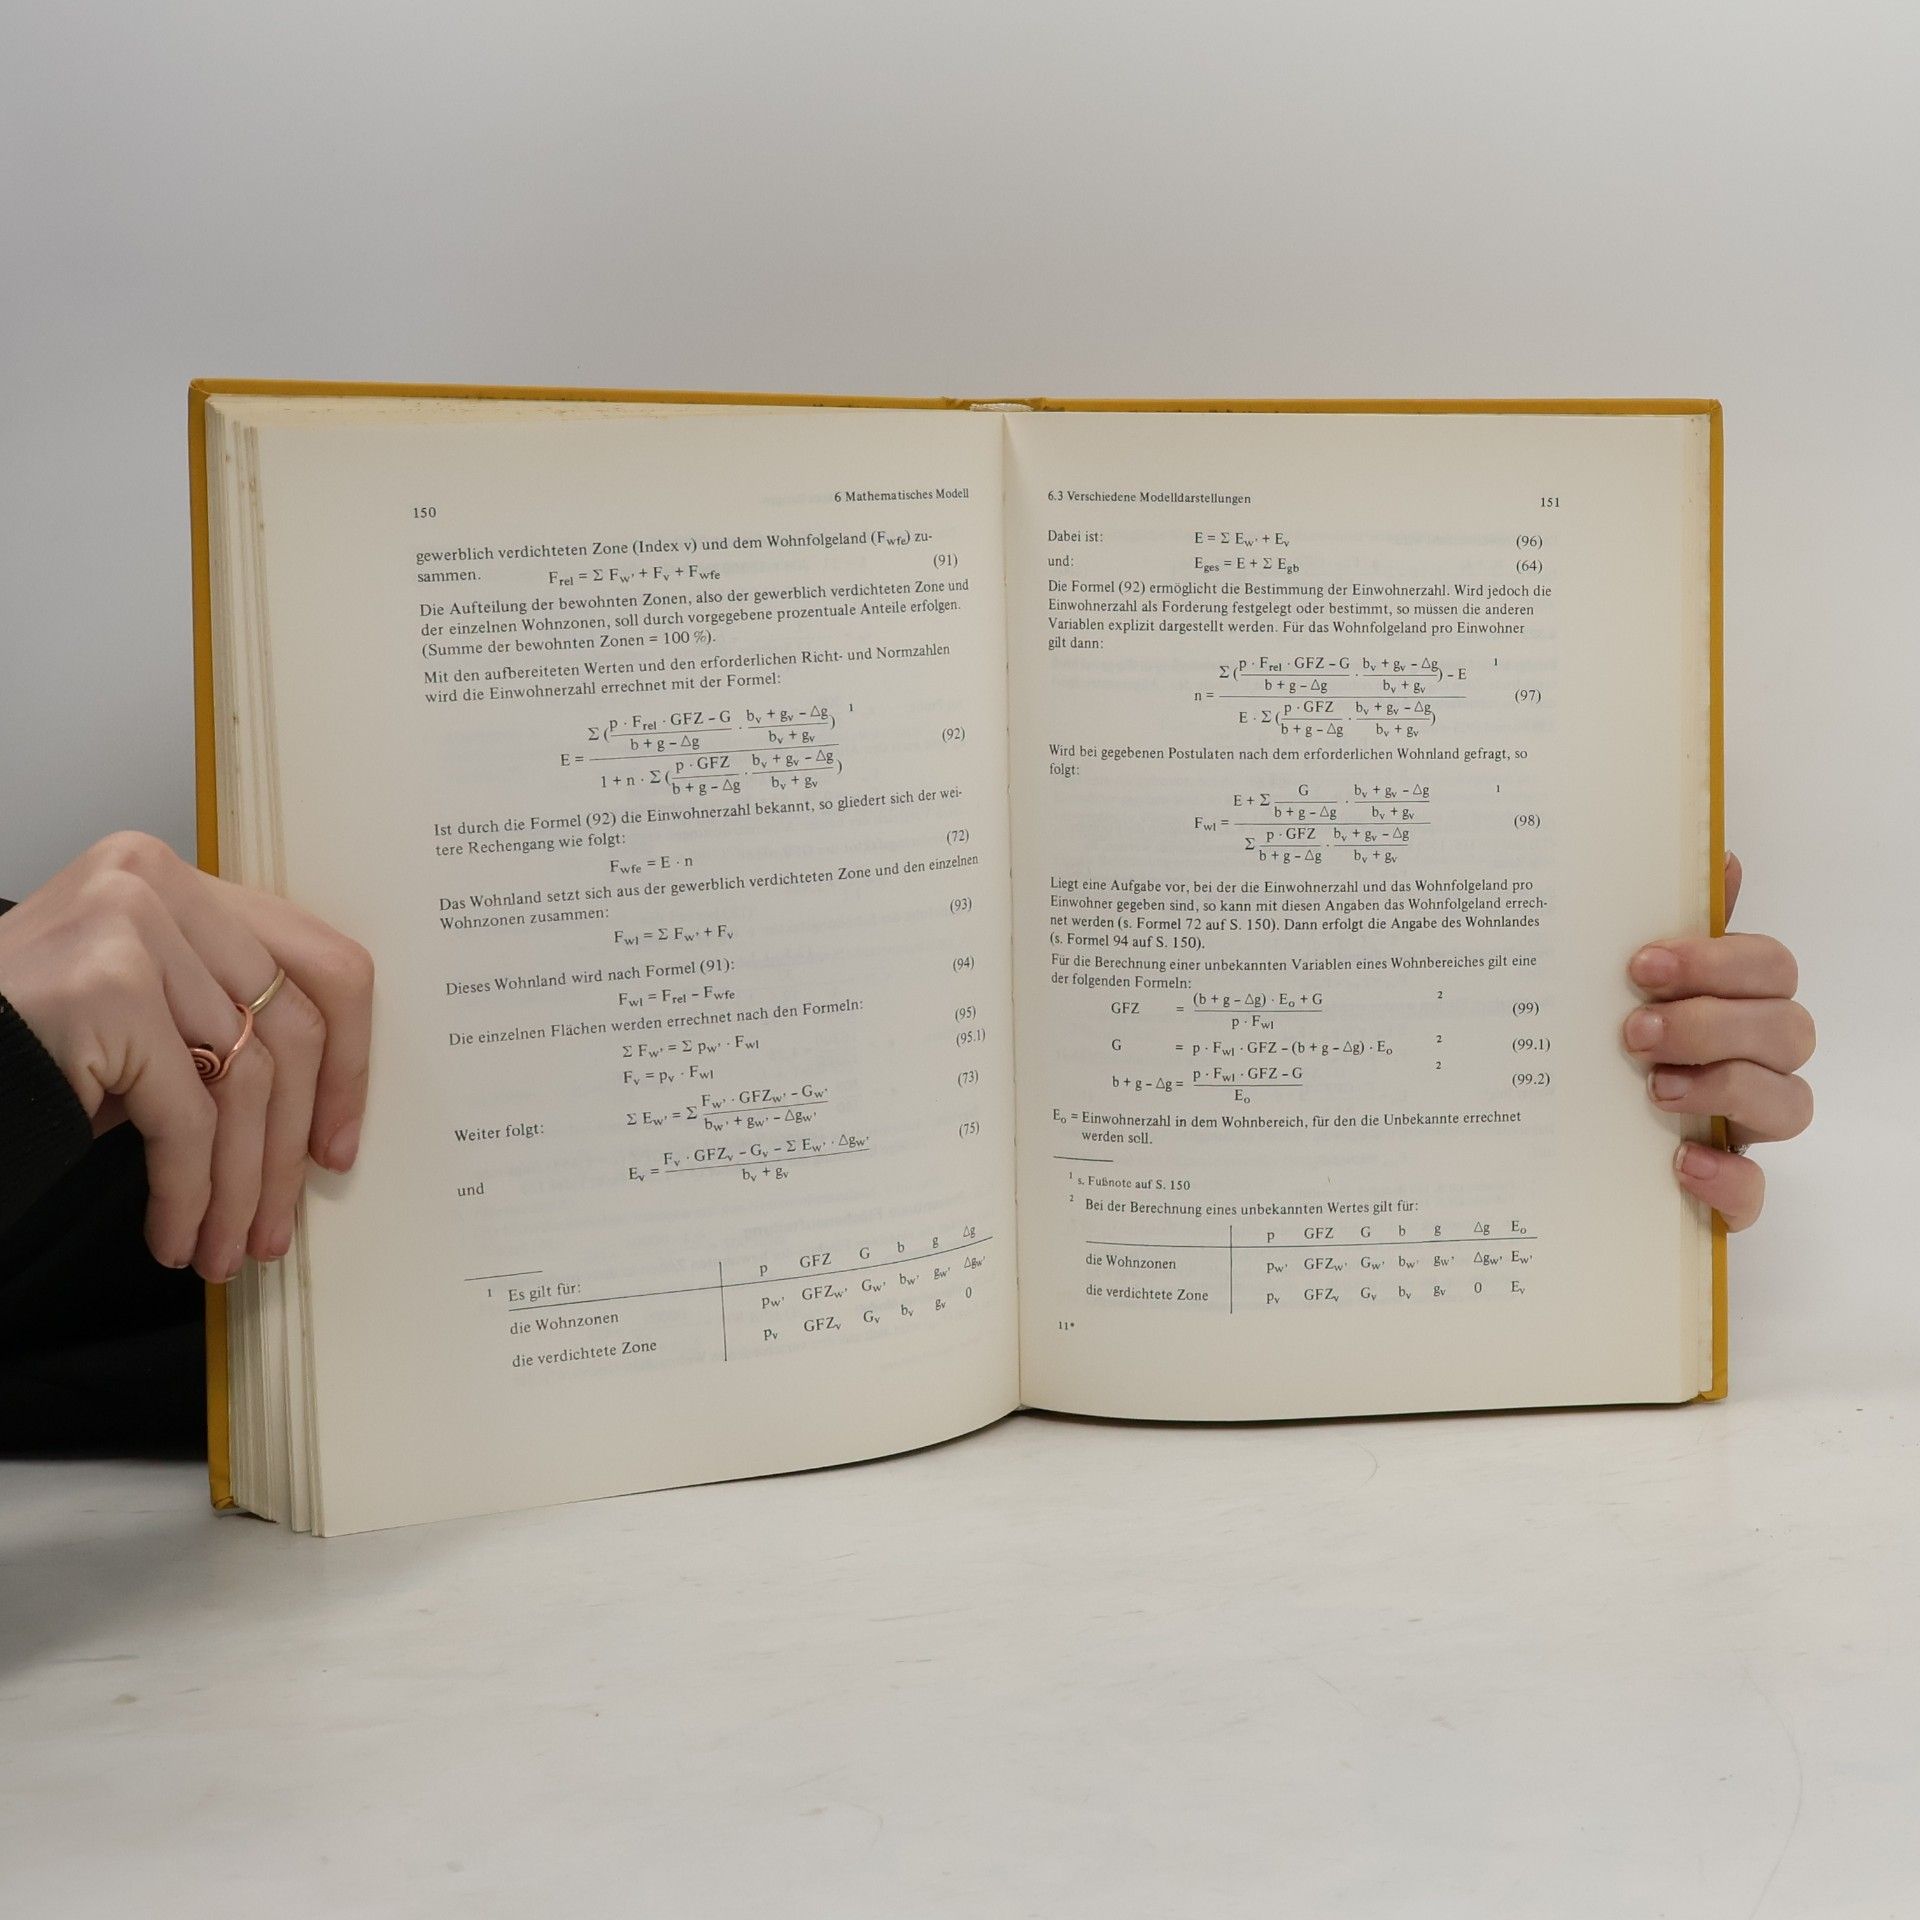 150
6 Mathematisches Modell
gewerblich verdichteten Zone (Index v) und dem Wohnfolgeland (F_wfe) zu-
sammen. F_rel = Σ F_w' + F_v + F_wfe (91)
Die Aufteilung der bewohnten Zonen, also der gewerblich verdichteten Zone und
der einzelnen Wohnzonen, soll durch vorgegebene prozentuale Anteile erfolgen.
(Summe der bewohnten Zonen = 100 %).
Mit den aufbereiteten Werten und den erforderlichen Richt- und Normzahlen
wird die Einwohnerzahl errechnet mit der Formel:
E = (Σ ((p · F_rel · GFZ – G)/(b + g – Δg) · (b_v + g_v – Δg)/(b_v + g_v))) / (1 + n · Σ ((p · GFZ)/(b + g – Δg) · (b_v + g_v – Δg)/(b_v + g_v))) ¹ (92)
Ist durch die Formel (92) die Einwohnerzahl bekannt, so gliedert sich der wei-
tere Rechengang wie folgt:
F_wfe = E · n (72)
Das Wohnland setzt sich aus der gewerblich verdichteten Zone und den einzelnen
Wohnzonen zusammen:
F_wl = Σ F_w' + F_v (93)
Dieses Wohnland wird nach Formel (91):
F_wl = F_rel – F_wfe (94)
Die einzelnen Flächen werden errechnet nach den Formeln:
Σ F_w' = Σ p_w' · F_wl (95)
F_v = p_v · F_wl (95.1)
Weiter folgt: Σ E_w' = Σ (F_w' · GFZ_w' – G_w')/(b_w' + g_w' – Δg_w') (73)
und E_v = (F_v · GFZ_v – G_v – Σ E_w' · Δg_w')/(b_v + g_v) (75)
¹ Es gilt für: p GFZ G b g Δg
die Wohnzonen p_w' GFZ_w' G_w' b_w' g_w' Δg_w'
die verdichtete Zone p_v GFZ_v G_v b_v g_v 0
6.3 Verschiedene Modelldarstellungen
151
Dabei ist: E = Σ E_w' + E_v (96)
und: E_ges = E + Σ E_gb (64)
Die Formel (92) ermöglicht die Bestimmung der Einwohnerzahl. Wird jedoch die
Einwohnerzahl als Forderung festgelegt oder bestimmt, so müssen die anderen
Variablen explizit dargestellt werden. Für das Wohnfolgeland pro Einwohner
gilt dann:
n = (Σ ((p · F_rel · GFZ – G)/(b + g – Δg) · (b_v + g_v – Δg)/(b_v + g_v)) – E) / (E · Σ ((p · GFZ)/(b + g – Δg) · (b_v + g_v – Δg)/(b_v + g_v))) ¹ (97)
Wird bei gegebenen Postulaten nach dem erforderlichen Wohnland gefragt, so
folgt:
F_wl = (E + Σ G/(b + g – Δg) · (b_v + g_v – Δg)/(b_v + g_v)) / (Σ (p · GFZ)/(b + g – Δg) · (b_v + g_v – Δg)/(b_v + g_v)) ¹ (98)
Liegt eine Aufgabe vor, bei der die Einwohnerzahl und das Wohnfolgeland pro
Einwohner gegeben sind, so kann mit diesen Angaben das Wohnfolgeland errech-
net werden (s. Formel 72 auf S. 150). Dann erfolgt die Angabe des Wohnlandes
(s. Formel 94 auf S. 150).
Für die Berechnung einer unbekannten Variablen eines Wohnbereiches gilt eine
der folgenden Formeln:
GFZ = ((b + g – Δg) · E_o + G)/(p · F_wl) ² (99)
G = p · F_wl · GFZ – (b + g – Δg) · E_o ² (99.1)
b + g – Δg = (p · F_wl · GFZ – G)/E_o ² (99.2)
E_o = Einwohnerzahl in dem Wohnbereich, für den die Unbekannte errechnet
werden soll.
¹ s. Fußnote auf S. 150
² Bei der Berechnung eines unbekannten Wertes gilt für:
p GFZ G b g Δg E_o
die Wohnzonen p_w' GFZ_w' G_w' b_w' g_w' Δg_w' E_w'
die verdichtete Zone p_v GFZ_v G_v b_v g_v 0 E_v
11*